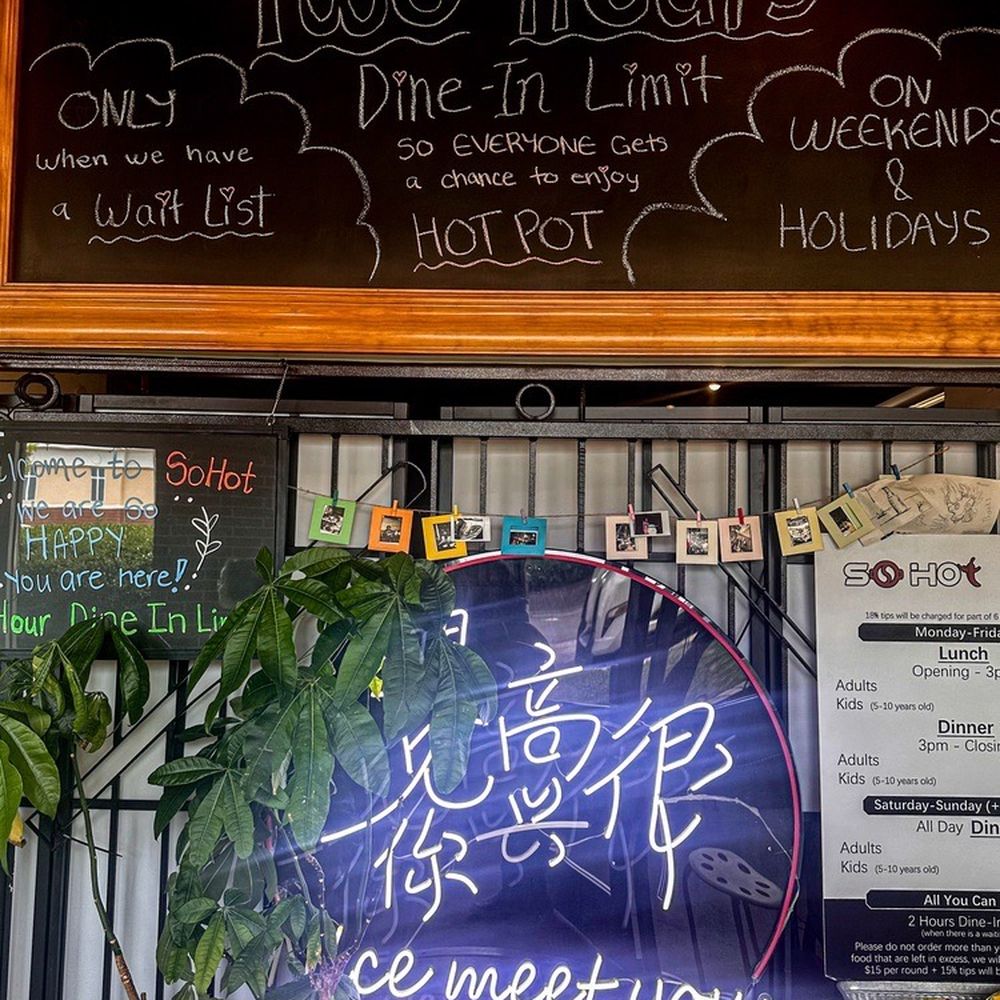 Two Hours
Dine-In Limit
SO EVERYONE Gets
a chance to enjoy
HOT POT
ONLY
when we have
a Wait List
ON
WEEKENDS
&
HOLIDAYS
elcome to SoHot
we are so
HAPPY
you are here!
Hour Dine In Li
很
高
興
見
你
ce meet you
SO HOT
18% tips will be charged for part of 6
Monday-Frida
Lunch
Opening - 3p
Adults
Kids (5-10 years old)
Dinner
3pm - Closin
Adults
Kids (5-10 years old)
Saturday-Sunday (+
All Day Din
Adults
Kids (5-10 years old)
All You Can
2 Hours Dine-In
(when there is a waiti
Please do not order more than y
food that are left in excess, we wi
$15 per round + 15% tips will b